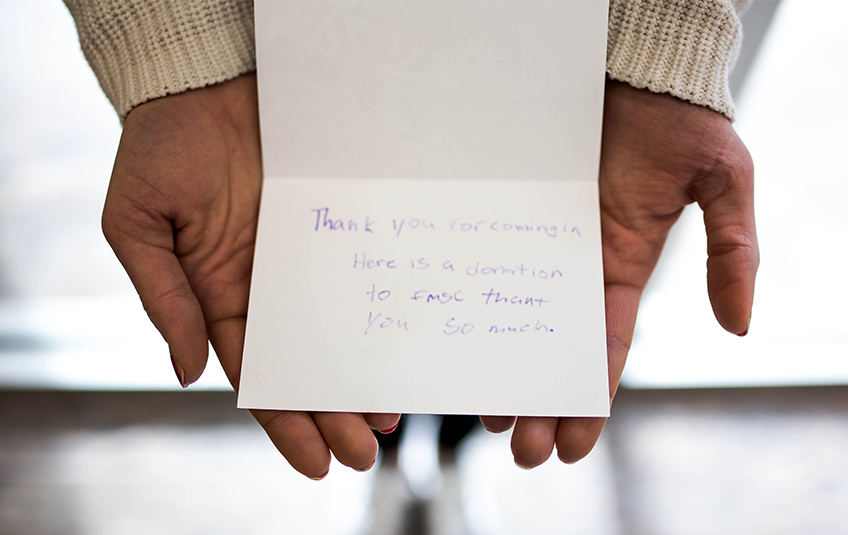 Thank you for coming in
Here is a donation
to FMSC thant
You so much.